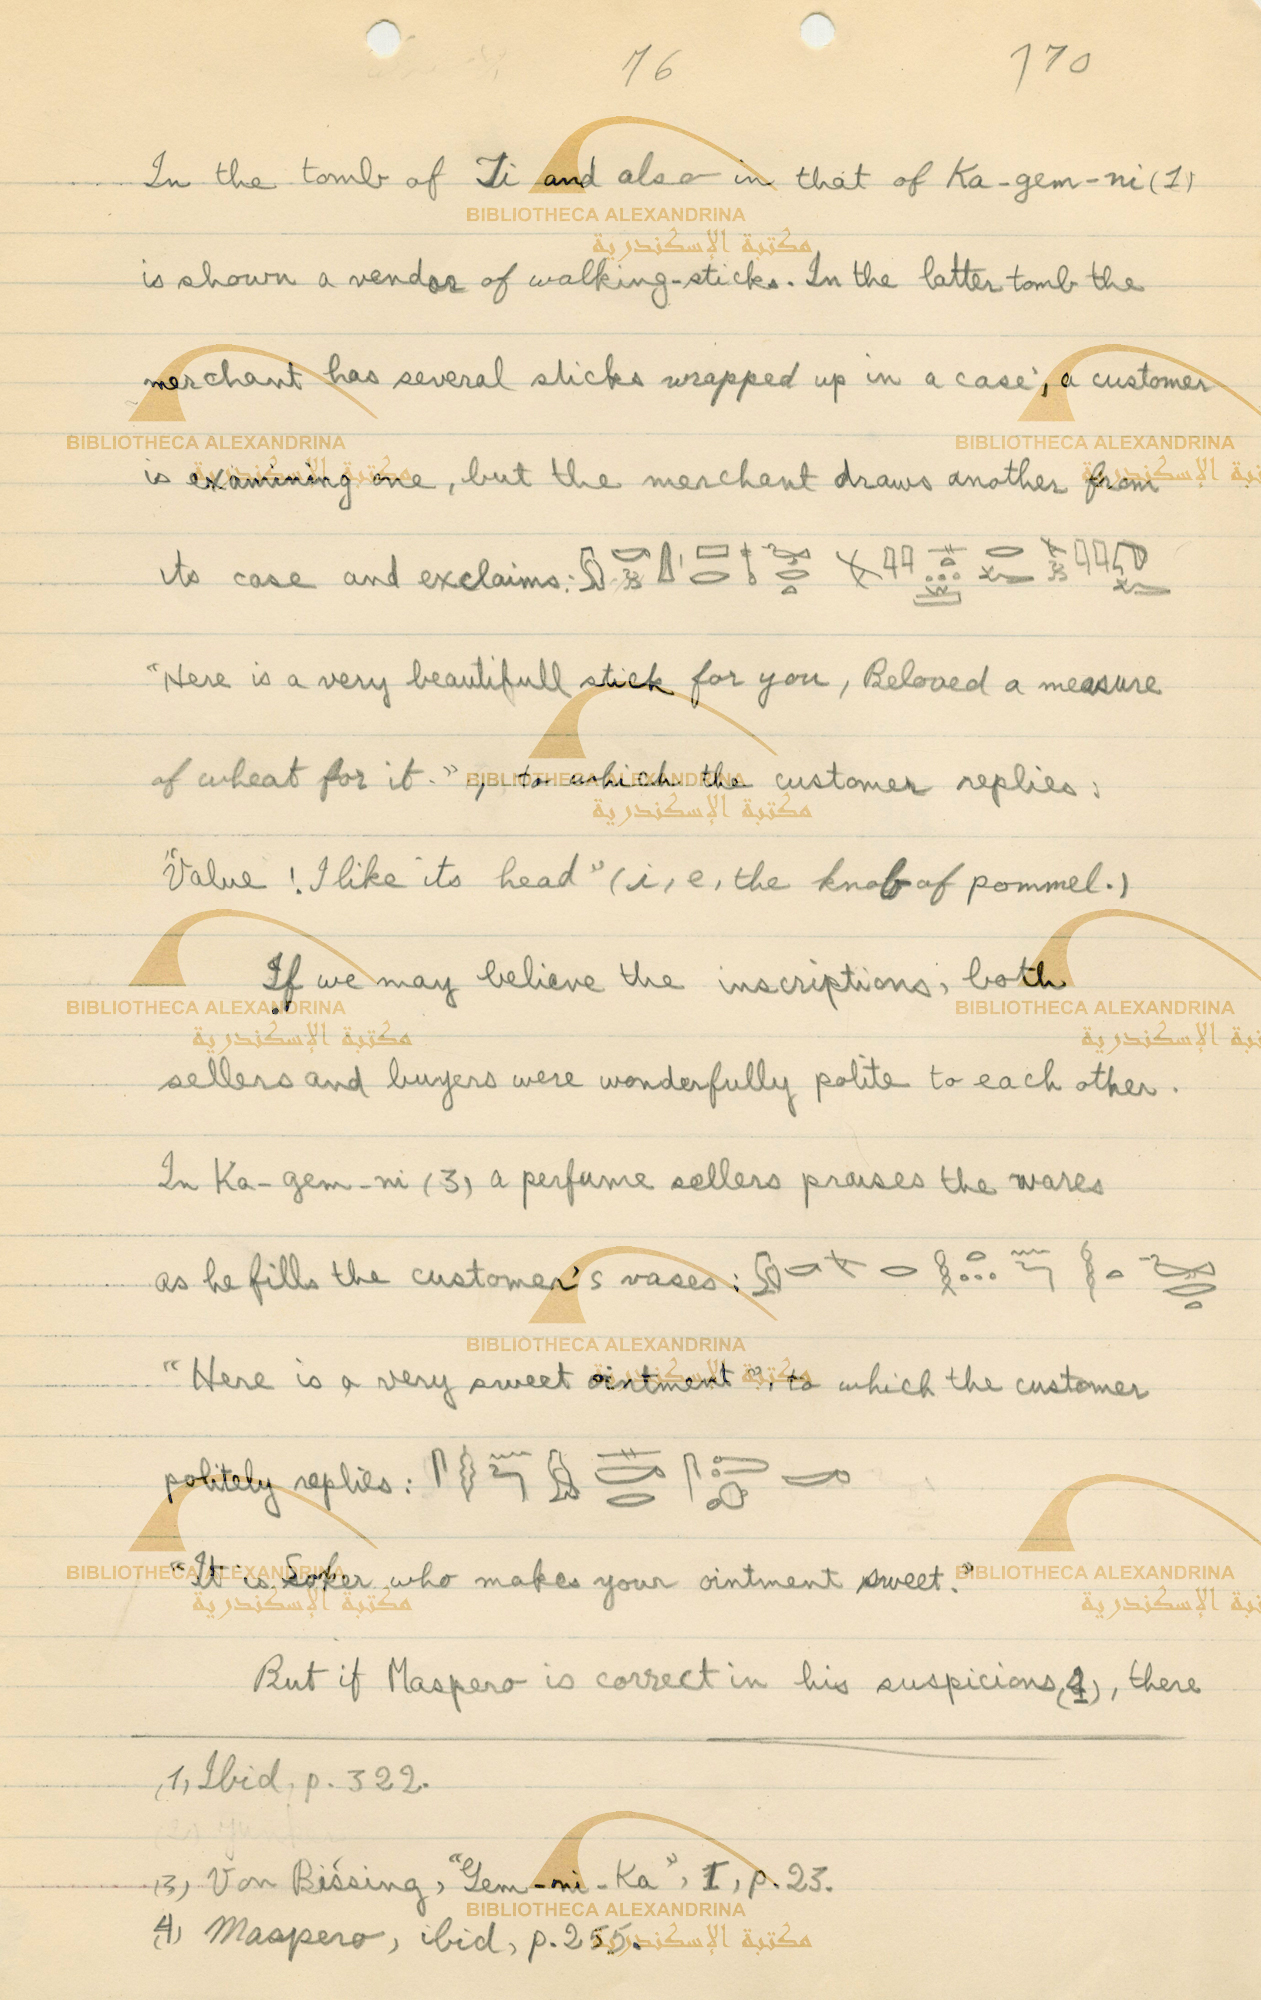 76 770
In the tomb of Ti and also in that of Ka-gem-ni (1)
is shown a vendor of walking-sticks. In the latter tomb the
merchant has several sticks wrapped up in a case; a customer
is examining one, but the merchant draws another from
its case and exclaims:
"Here is a very beautifull stick for you, Beloved a measure
of wheat for it.", to which the customer replies:
"Value! I like its head" (i, e, the knob of pommel.)
If we may believe the inscriptions, both
sellers and buyers were wonderfully polite to each other.
In Ka-gem-ni (3) a perfume sellers praises the wares
as he fills the customer's vases:
"Here is a very sweet ointment", to which the customer
politely replies:
"It is Soker who makes your ointment sweet."
But if Maspero is correct in his suspicions (4), there
(1) Ibid, p. 322.
(3) Von Bissing, "Gem-ni-Ka", I, p. 23.
(4) Maspero, ibid, p. 255.
BIBLIOTHECA ALEXANDRINA
مكتبة الإسكندرية